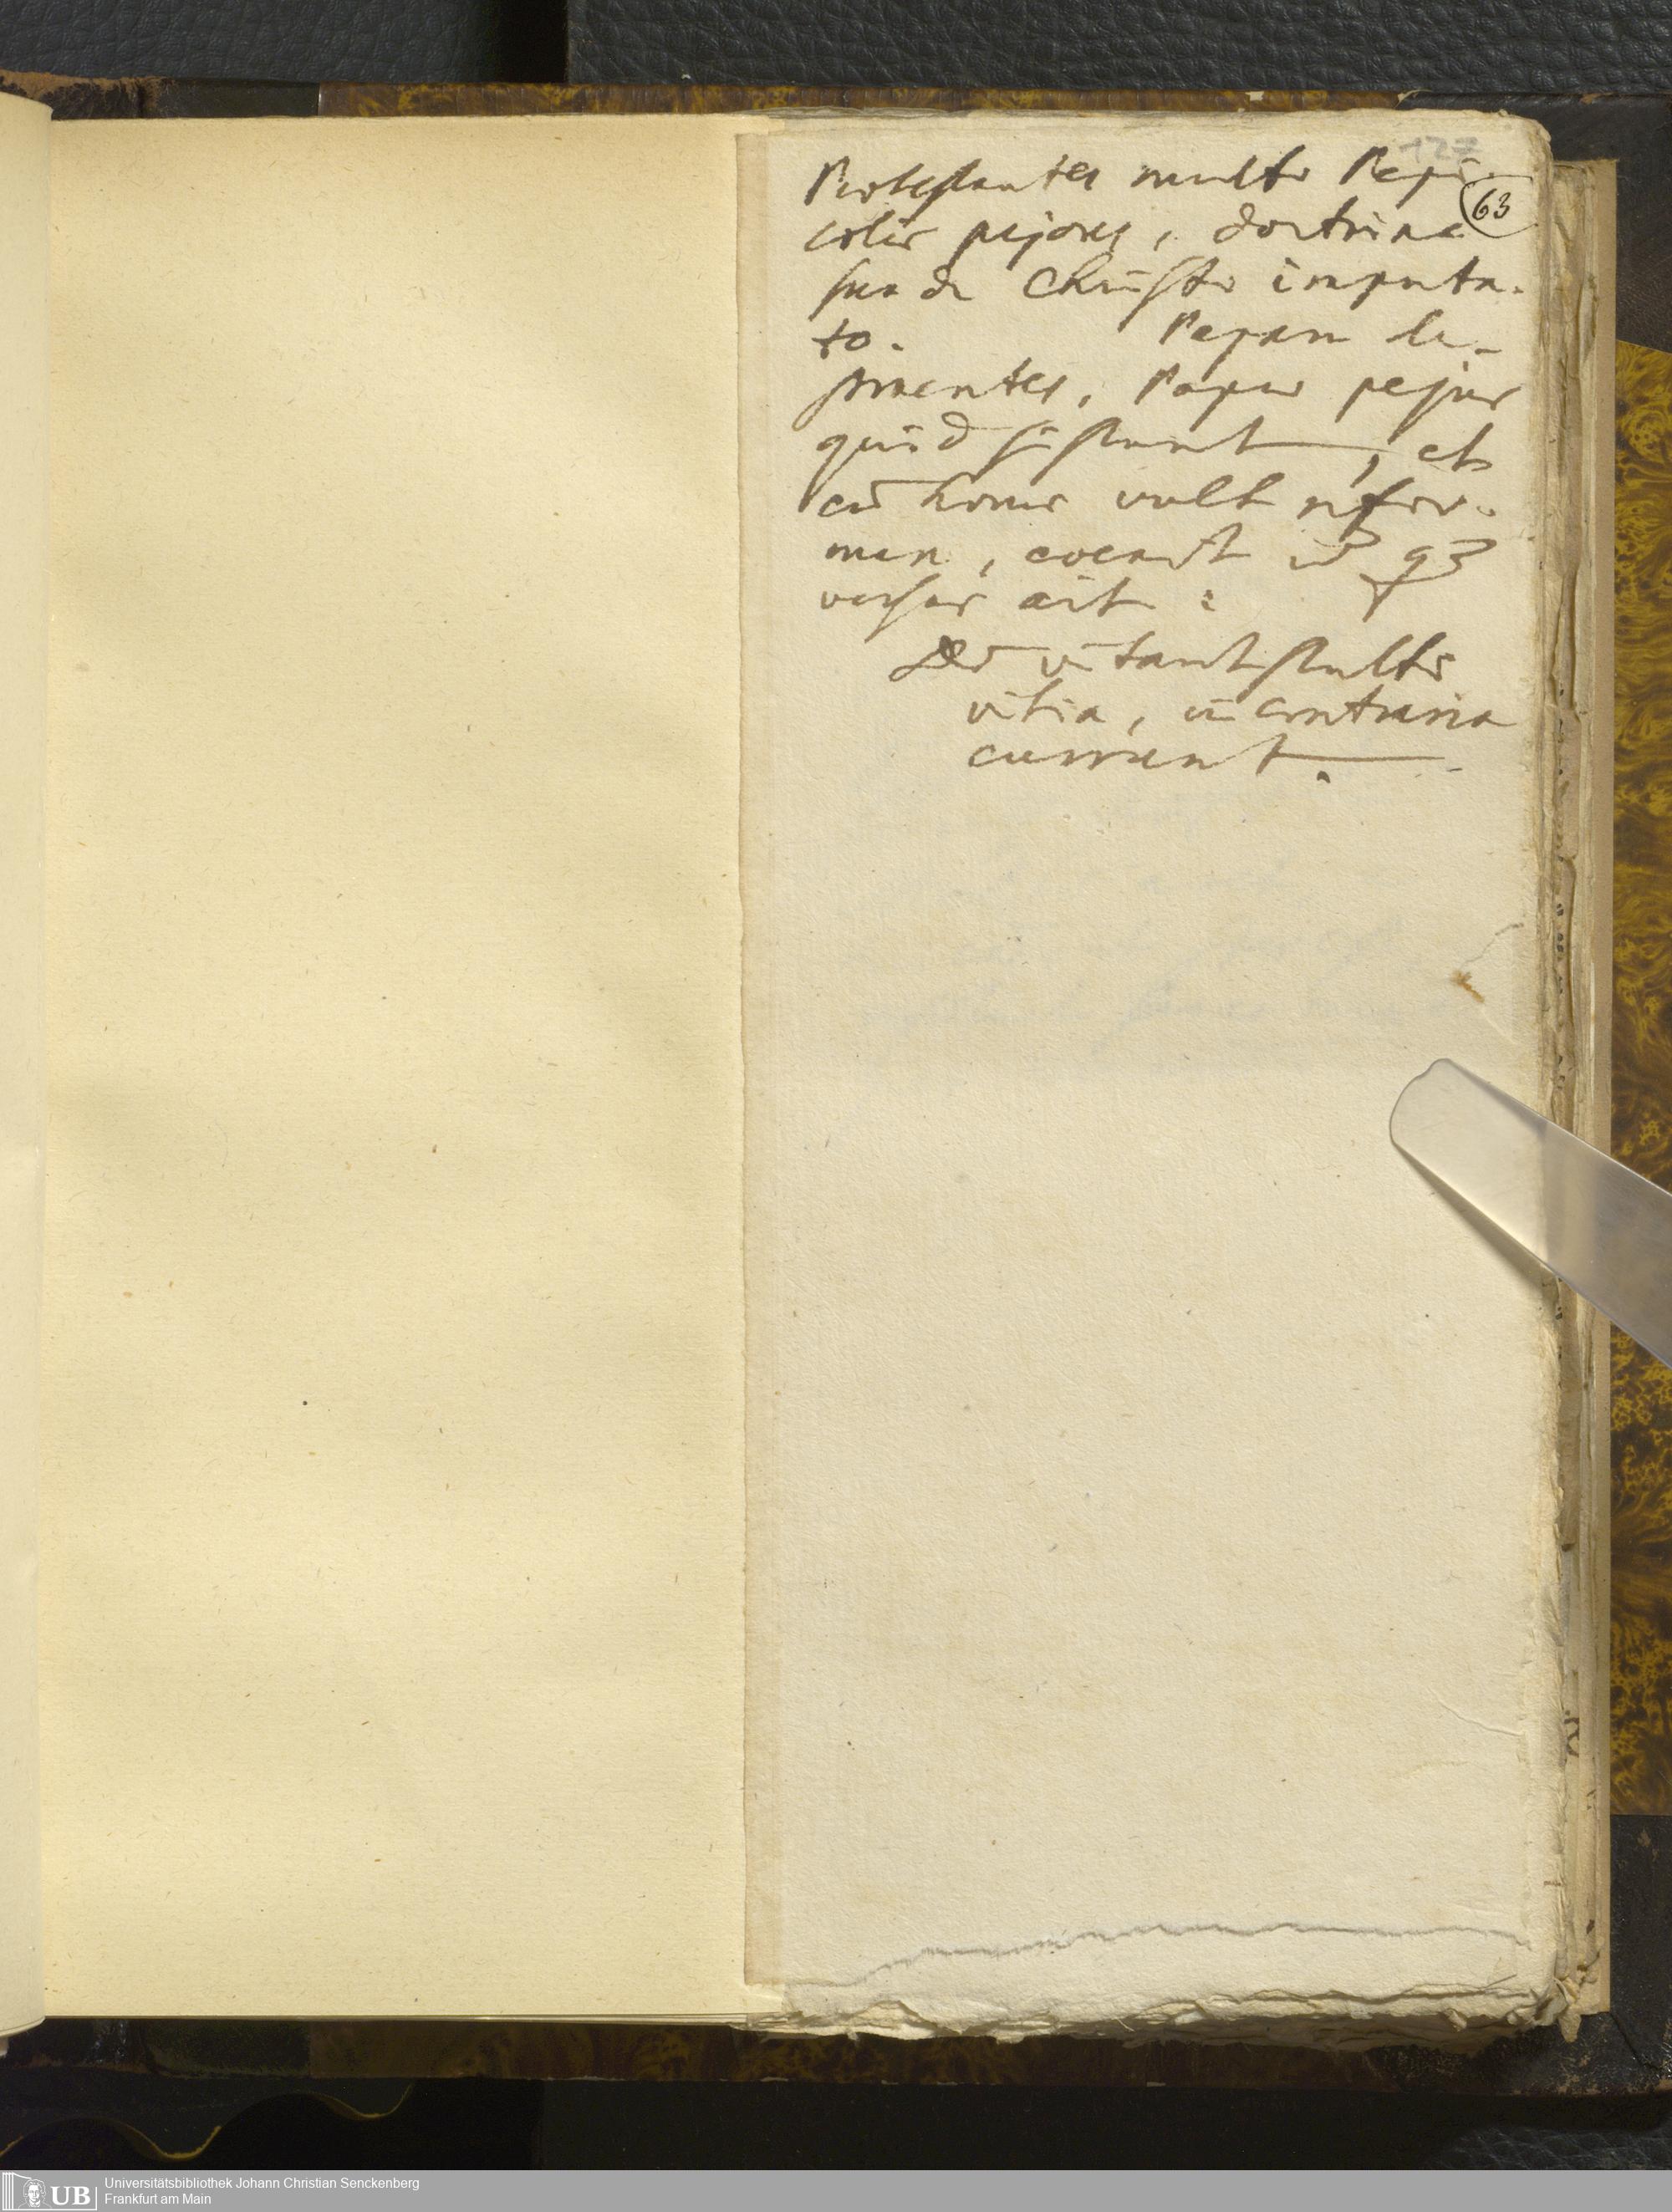 127
63
Protestantes multo Papi-
colis pejores, doctrina
sua de Christo imputa-
to. Papam de-
struentes, Papa pejus
quid sistunt, et
cū homo vult refor-
mare, evenit id qʒ
versus ait:
Dū vitant stulti
vitia, in contraria
currunt.
UB
Universitätsbibliothek Johann Christian Senckenberg
Frankfurt am Main